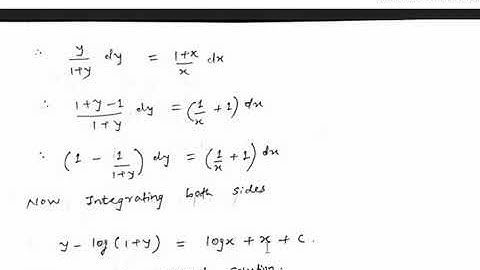 ∴ y/(1+y) dy = (1+x)/x dx
∴ (1+y-1)/(1+y) dy = (1/x + 1) dx
∴ (1 - 1/(1+y)) dy = (1/x + 1) dx
Now Integrating both sides
y - log(1+y) = logx + x + c.
solution.